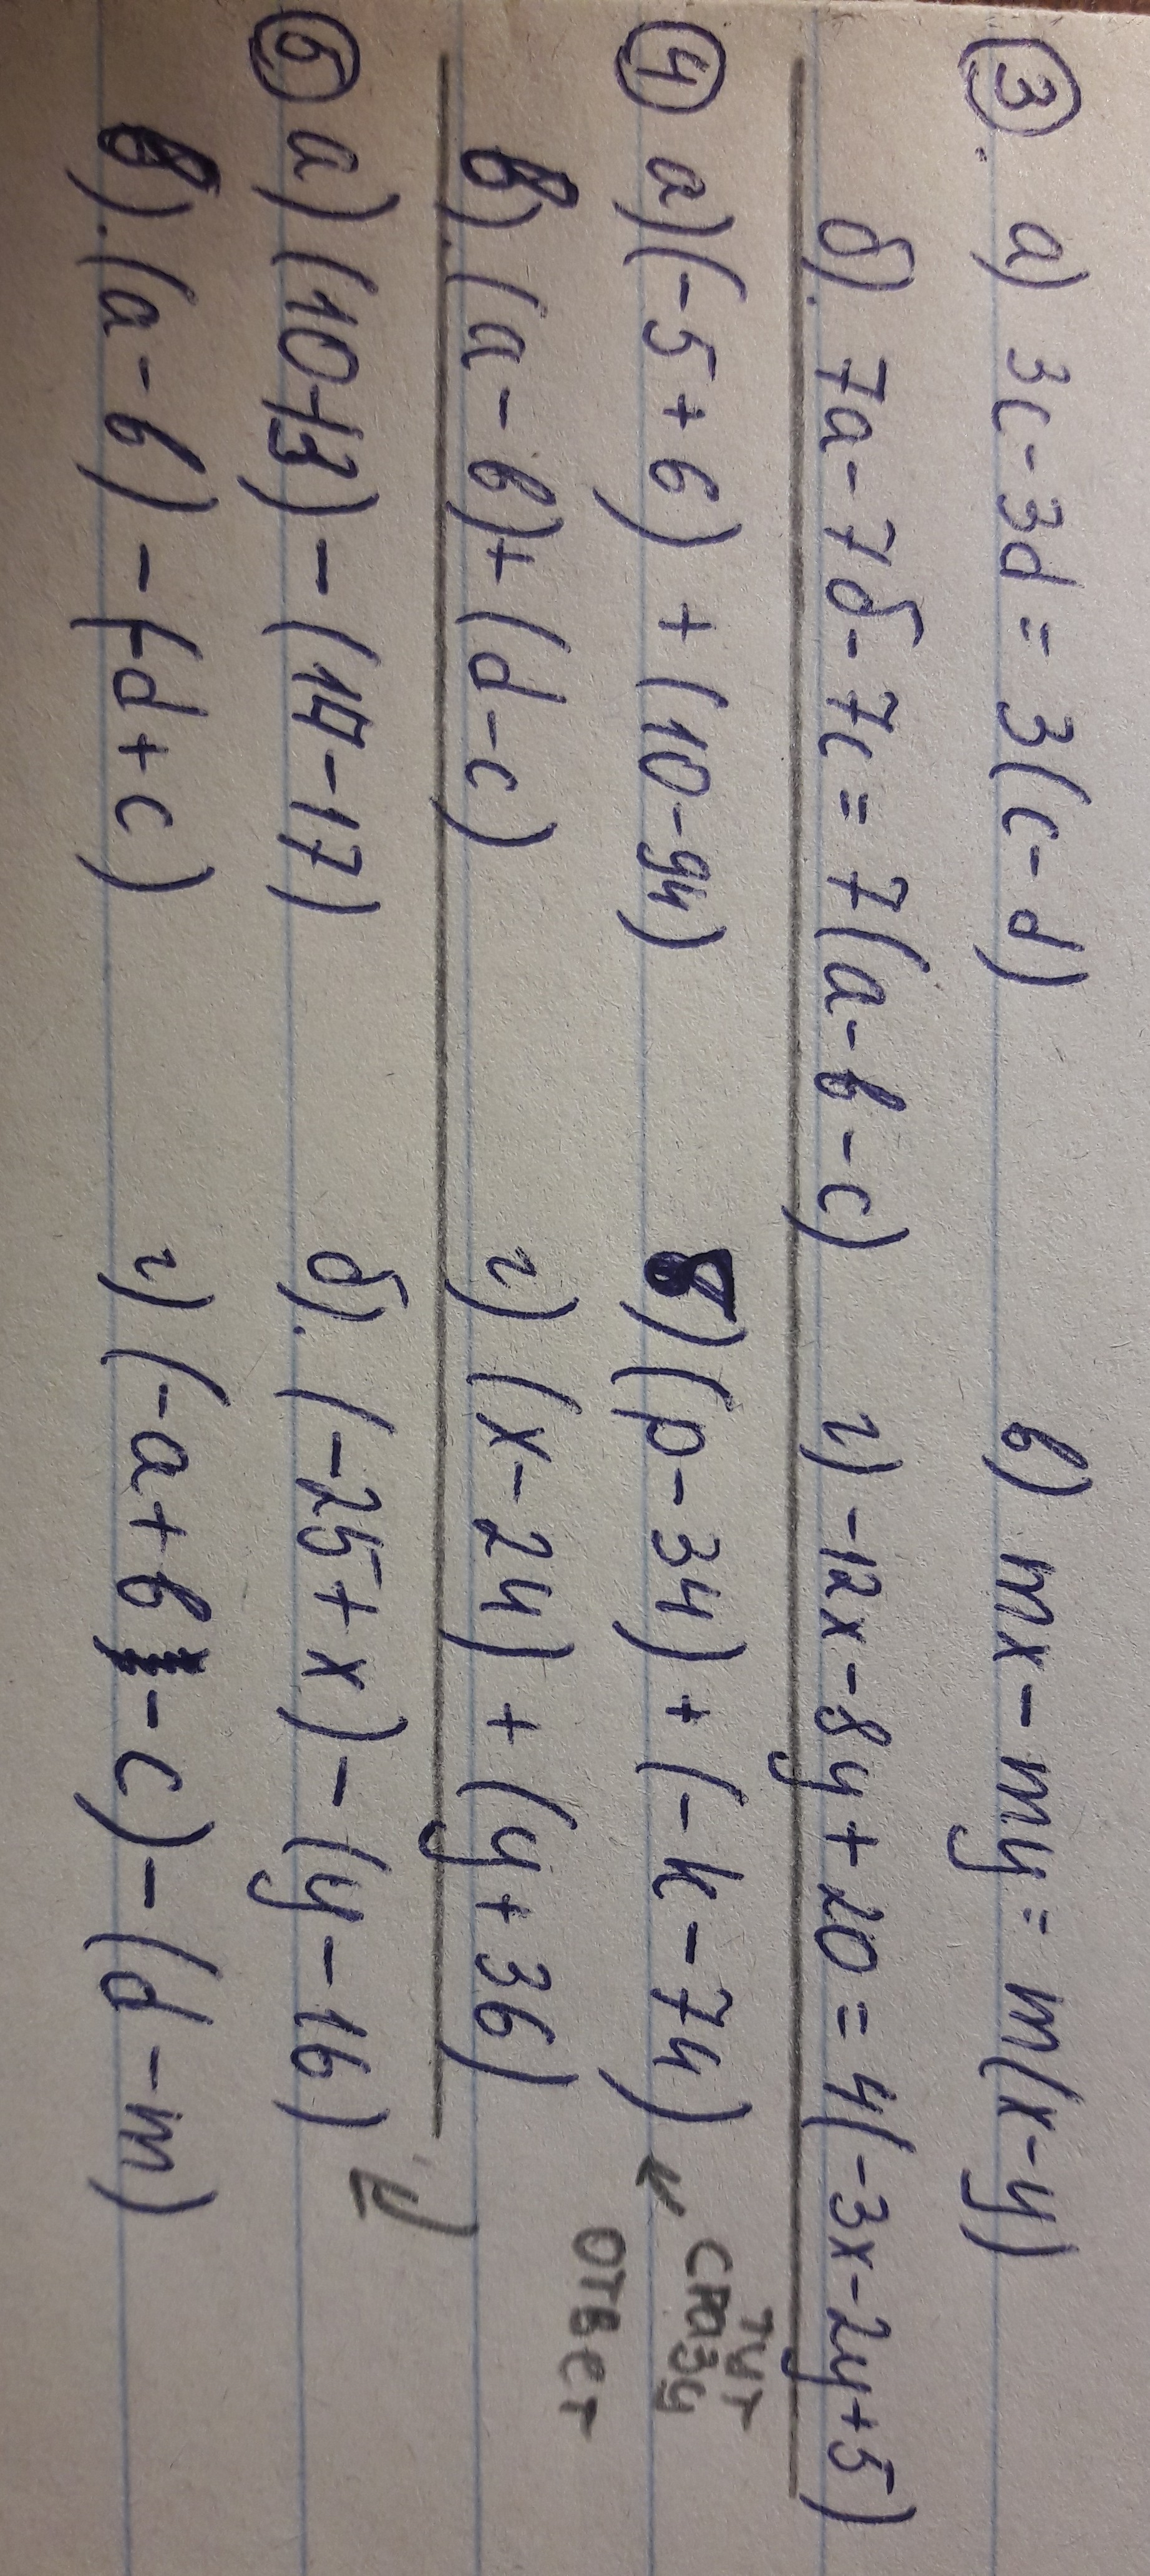 ③. а) 3c - 3d = 3(c - d) в) mx - my = m(x - y)
б). 7a - 7б - 7c = 7(a - в - c) г) -12x - 8y + 20 = 4(-3x - 2y + 5)
④ а) (-5 + 6) + (10 - 94) б) (p - 34) + (-k - 74) ↙ тут сразу ответ
в). (a - в) + (d - c) г) (x - 24) + (y + 36)
⑤ а) (10 + 3) - (14 - 17) б). (-25 + x) - (y - 16)
в). (a - в) - (-d + c) г) (-a + в - c) - (d - m)